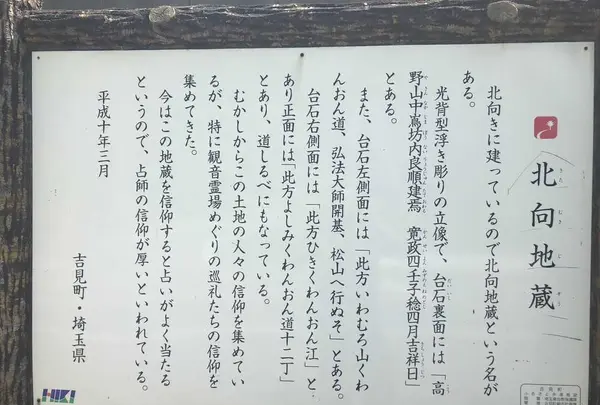 北向地蔵
きた むき じ ぞう
北向きに建っているので北向地蔵という名が
ある。
光背型浮き彫りの立像で、台石裏面には「高
野山中嶌坊内良順建焉 寛政四壬子稔四月吉祥日」
とある。
また、台石左側面には「此方いわむろ山くわ
んおん道、弘法大師開基、松山へ行ぬそ」とある。
台石右側面には「此方ひきくわんおん江」と
あり正面には「此方よしみくわんおん道十二丁」
とあり、道しるべにもなっている。
むかしからこの土地の人々の信仰を集めてい
るが、特に観音霊場めぐりの巡礼たちの信仰を
集めてきた。
今はこの地蔵を信仰すると占いがよく当たる
というので、占師の信仰が厚いといわれている。
平成十年三月
吉見町・埼玉県
HIKI